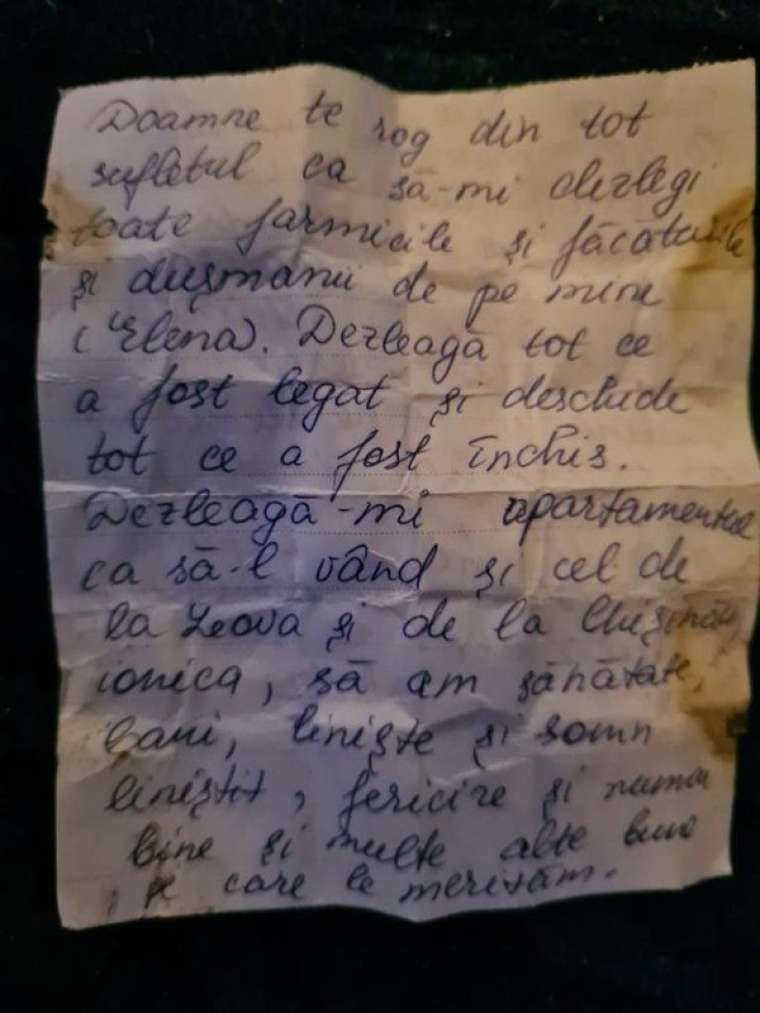 Doamne te rog din tot
sufletul ca să-mi dezlegi
toate farmicile și făcăturile
și dușmanii de pe mine
(Elena). Dezleagă tot ce
a fost legat și deschide
tot ce a fost închis.
Dezleagă-mi apartamentul
ca să-l vând și cel de
la Leova și de la Chișinău,
ionica, să am sănătate,
bani, liniște și somn
liniștit, fericire și numai
bine și multe alte bune
pe care le merităm.